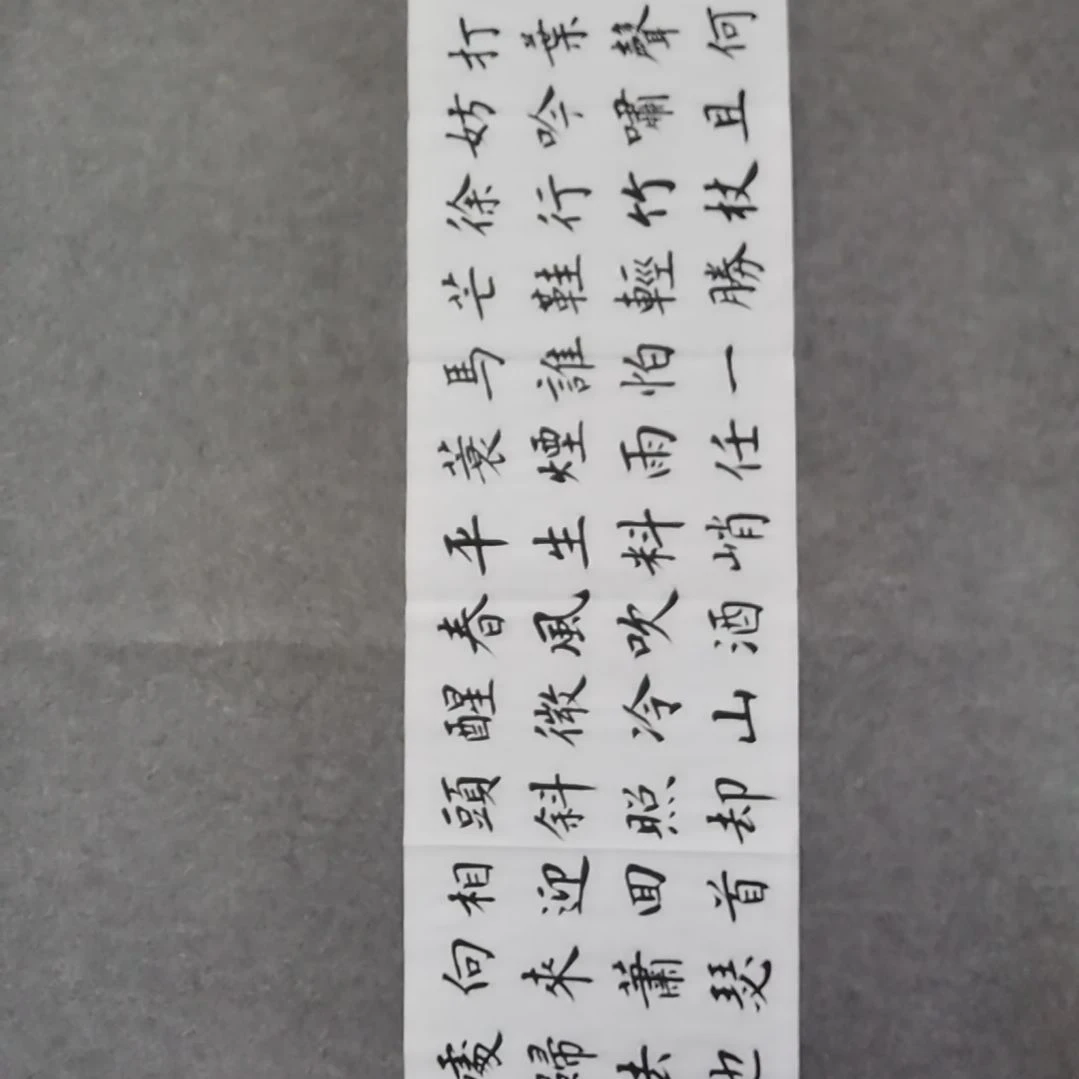 打葉聲何
妨吟嘯且
徐行竹杖
芒鞋輕勝
馬誰怕一
蓑煙雨任
平生料峭
春風吹酒
醒微冷山
頭斜照却
相迎回首
向來蕭瑟
處歸去也